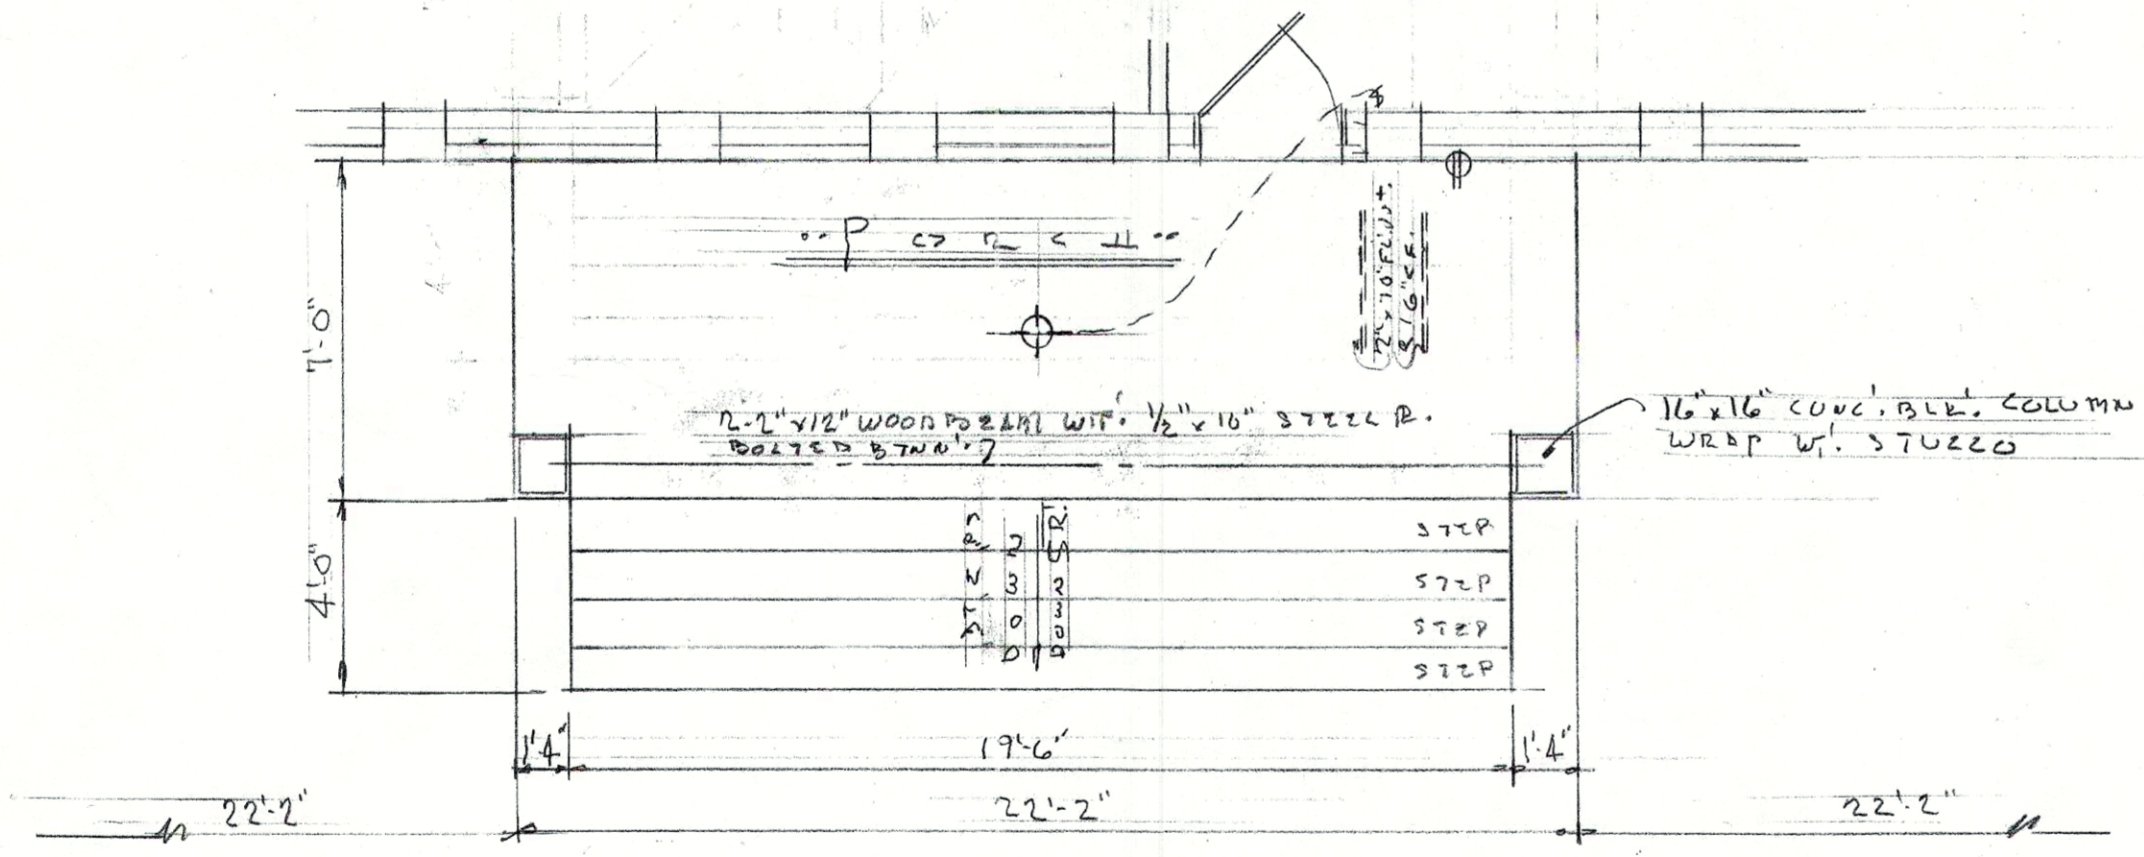 "PORCH"
2"x10" FL. JNT.
@ 16" C.C.
7'-0"
2-2"x12" WOOD BEAM WIT. 1/2" x 10" STEEL PL.
BOLTED BTWN.
16"x16" CONC. BLK. COLUMN
WRAP W/. STUCCO
4'-0"
STEP
STEP
STEP
STEP
1'-4"
19'-6"
1'-4"
22'-2"
22'-2"
22'-2"